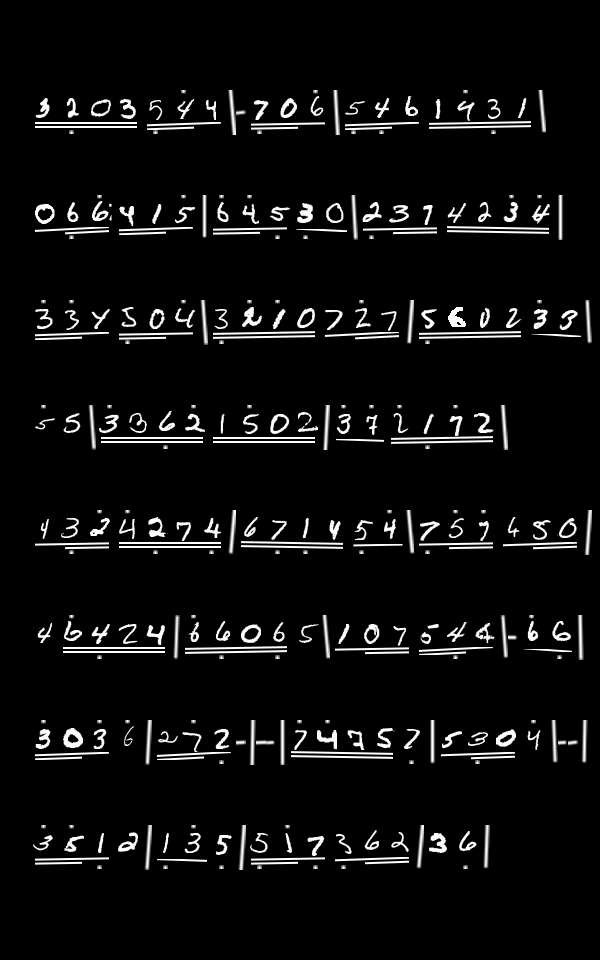 3203544|-706|5461931
066415|64530|2374234
334504|3210727|560233
55|33621502|372172
4324274|671454|757450
46424|66065|107544|-66
3036|272-|--|747572|5304|--|
3512|135|517362|36|